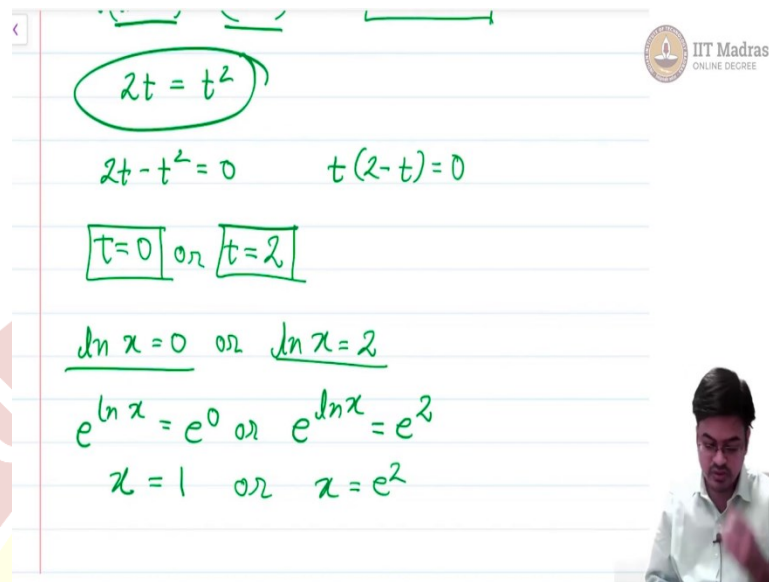 IIT Madras
ONLINE DEGREE
2t = t²
2t - t² = 0 t(2-t) = 0
t=0 or t=2
ln x = 0 or ln x = 2
e^{ln x} = e⁰ or e^{ln x} = e²
x = 1 or x = e²